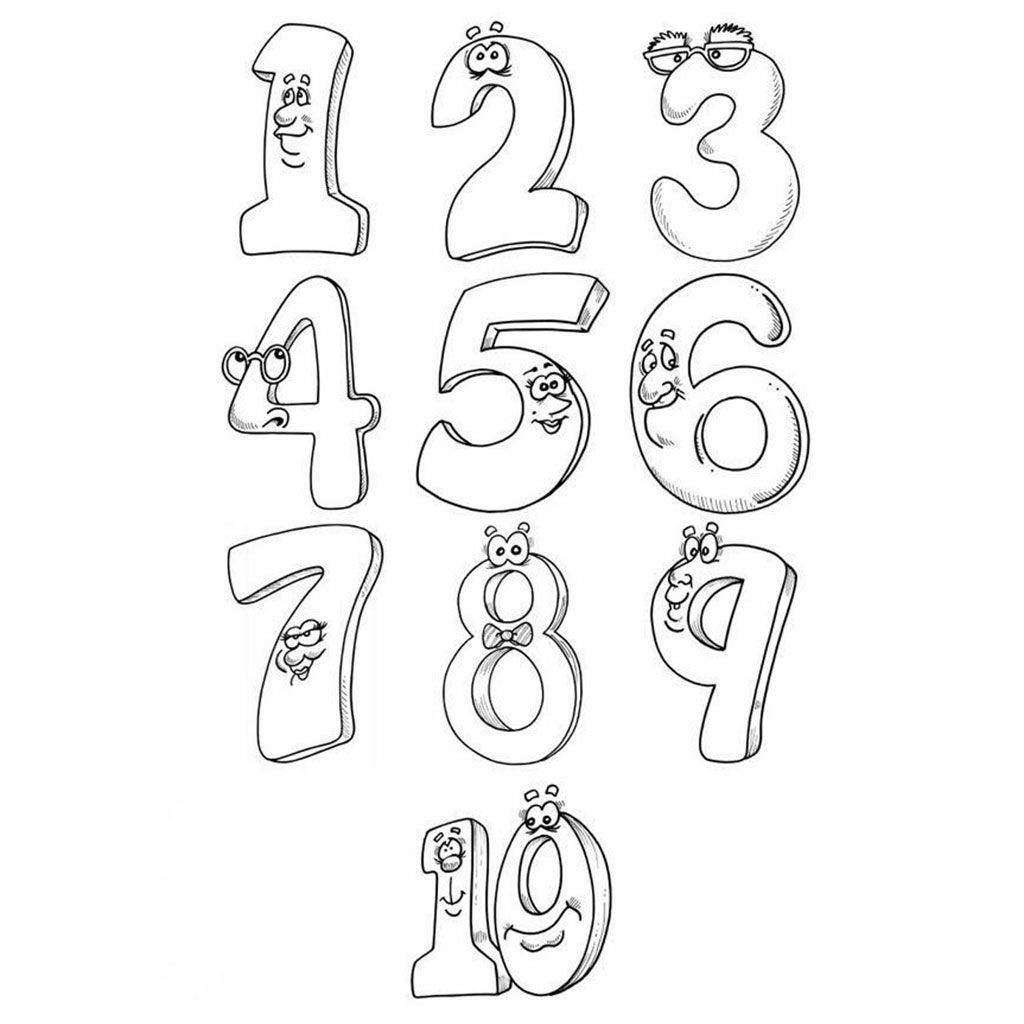 1 2 3
4 5 6
7 8 9
10